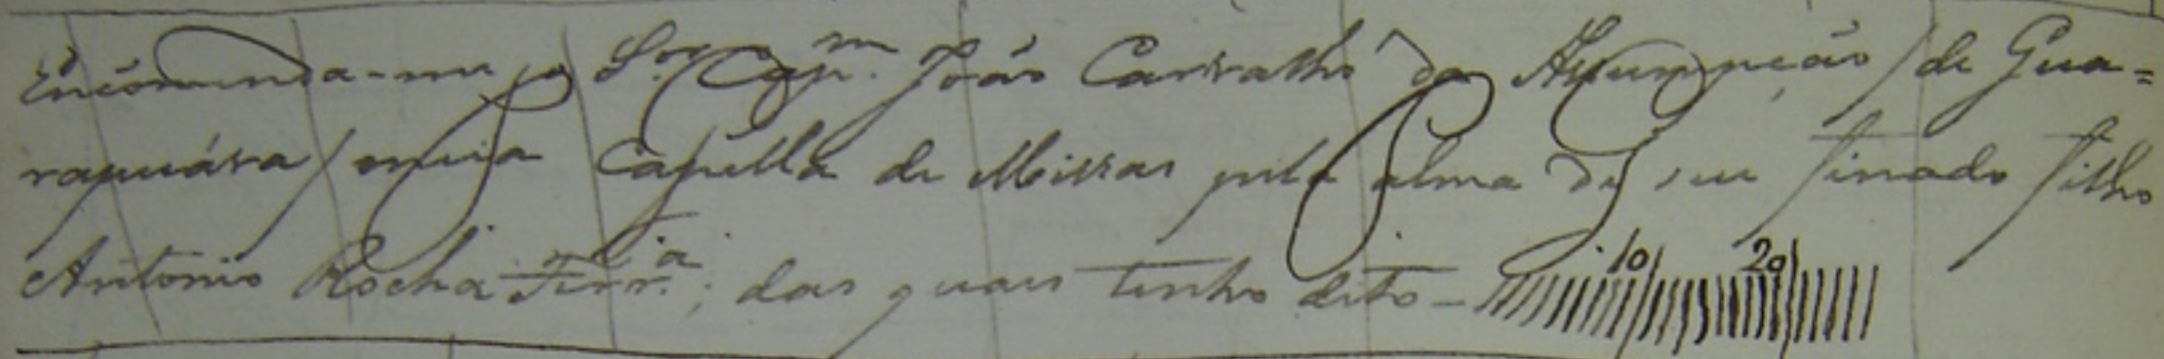 Encõmenda-me o Snr. Capm. João Carvalho da Assumpção (de Gua=
rapuáva) meia Capella de Missas pela alma de seu finado filho
Antonio Rocha Ferrª.; das quais tenho dito - 10 20